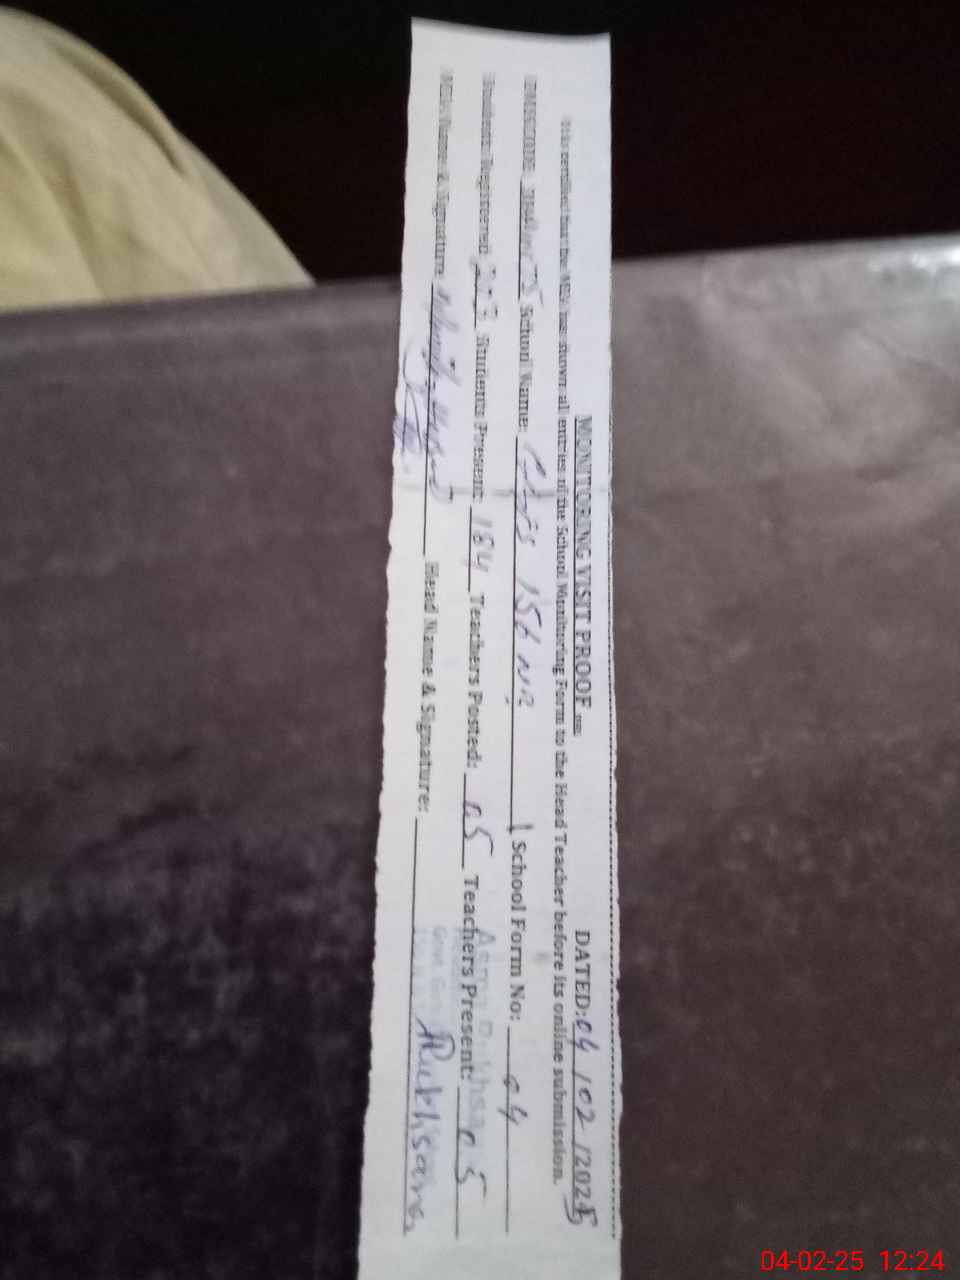 MONITORING VISIT PROOF DATED: 04 / 02 / 2025
It is certified that the MEA has shown all entries of the School Monitoring Form to the Head Teacher before its online submission.
EMISCODE: School Name: 156 School Form No: 04
Students Registered: 203 Students Present: 184 Teachers Posted: 05 Teachers Present: 05
MEA Name & Signature: Head Name & Signature: Rukhsana
04-02-25 12:24